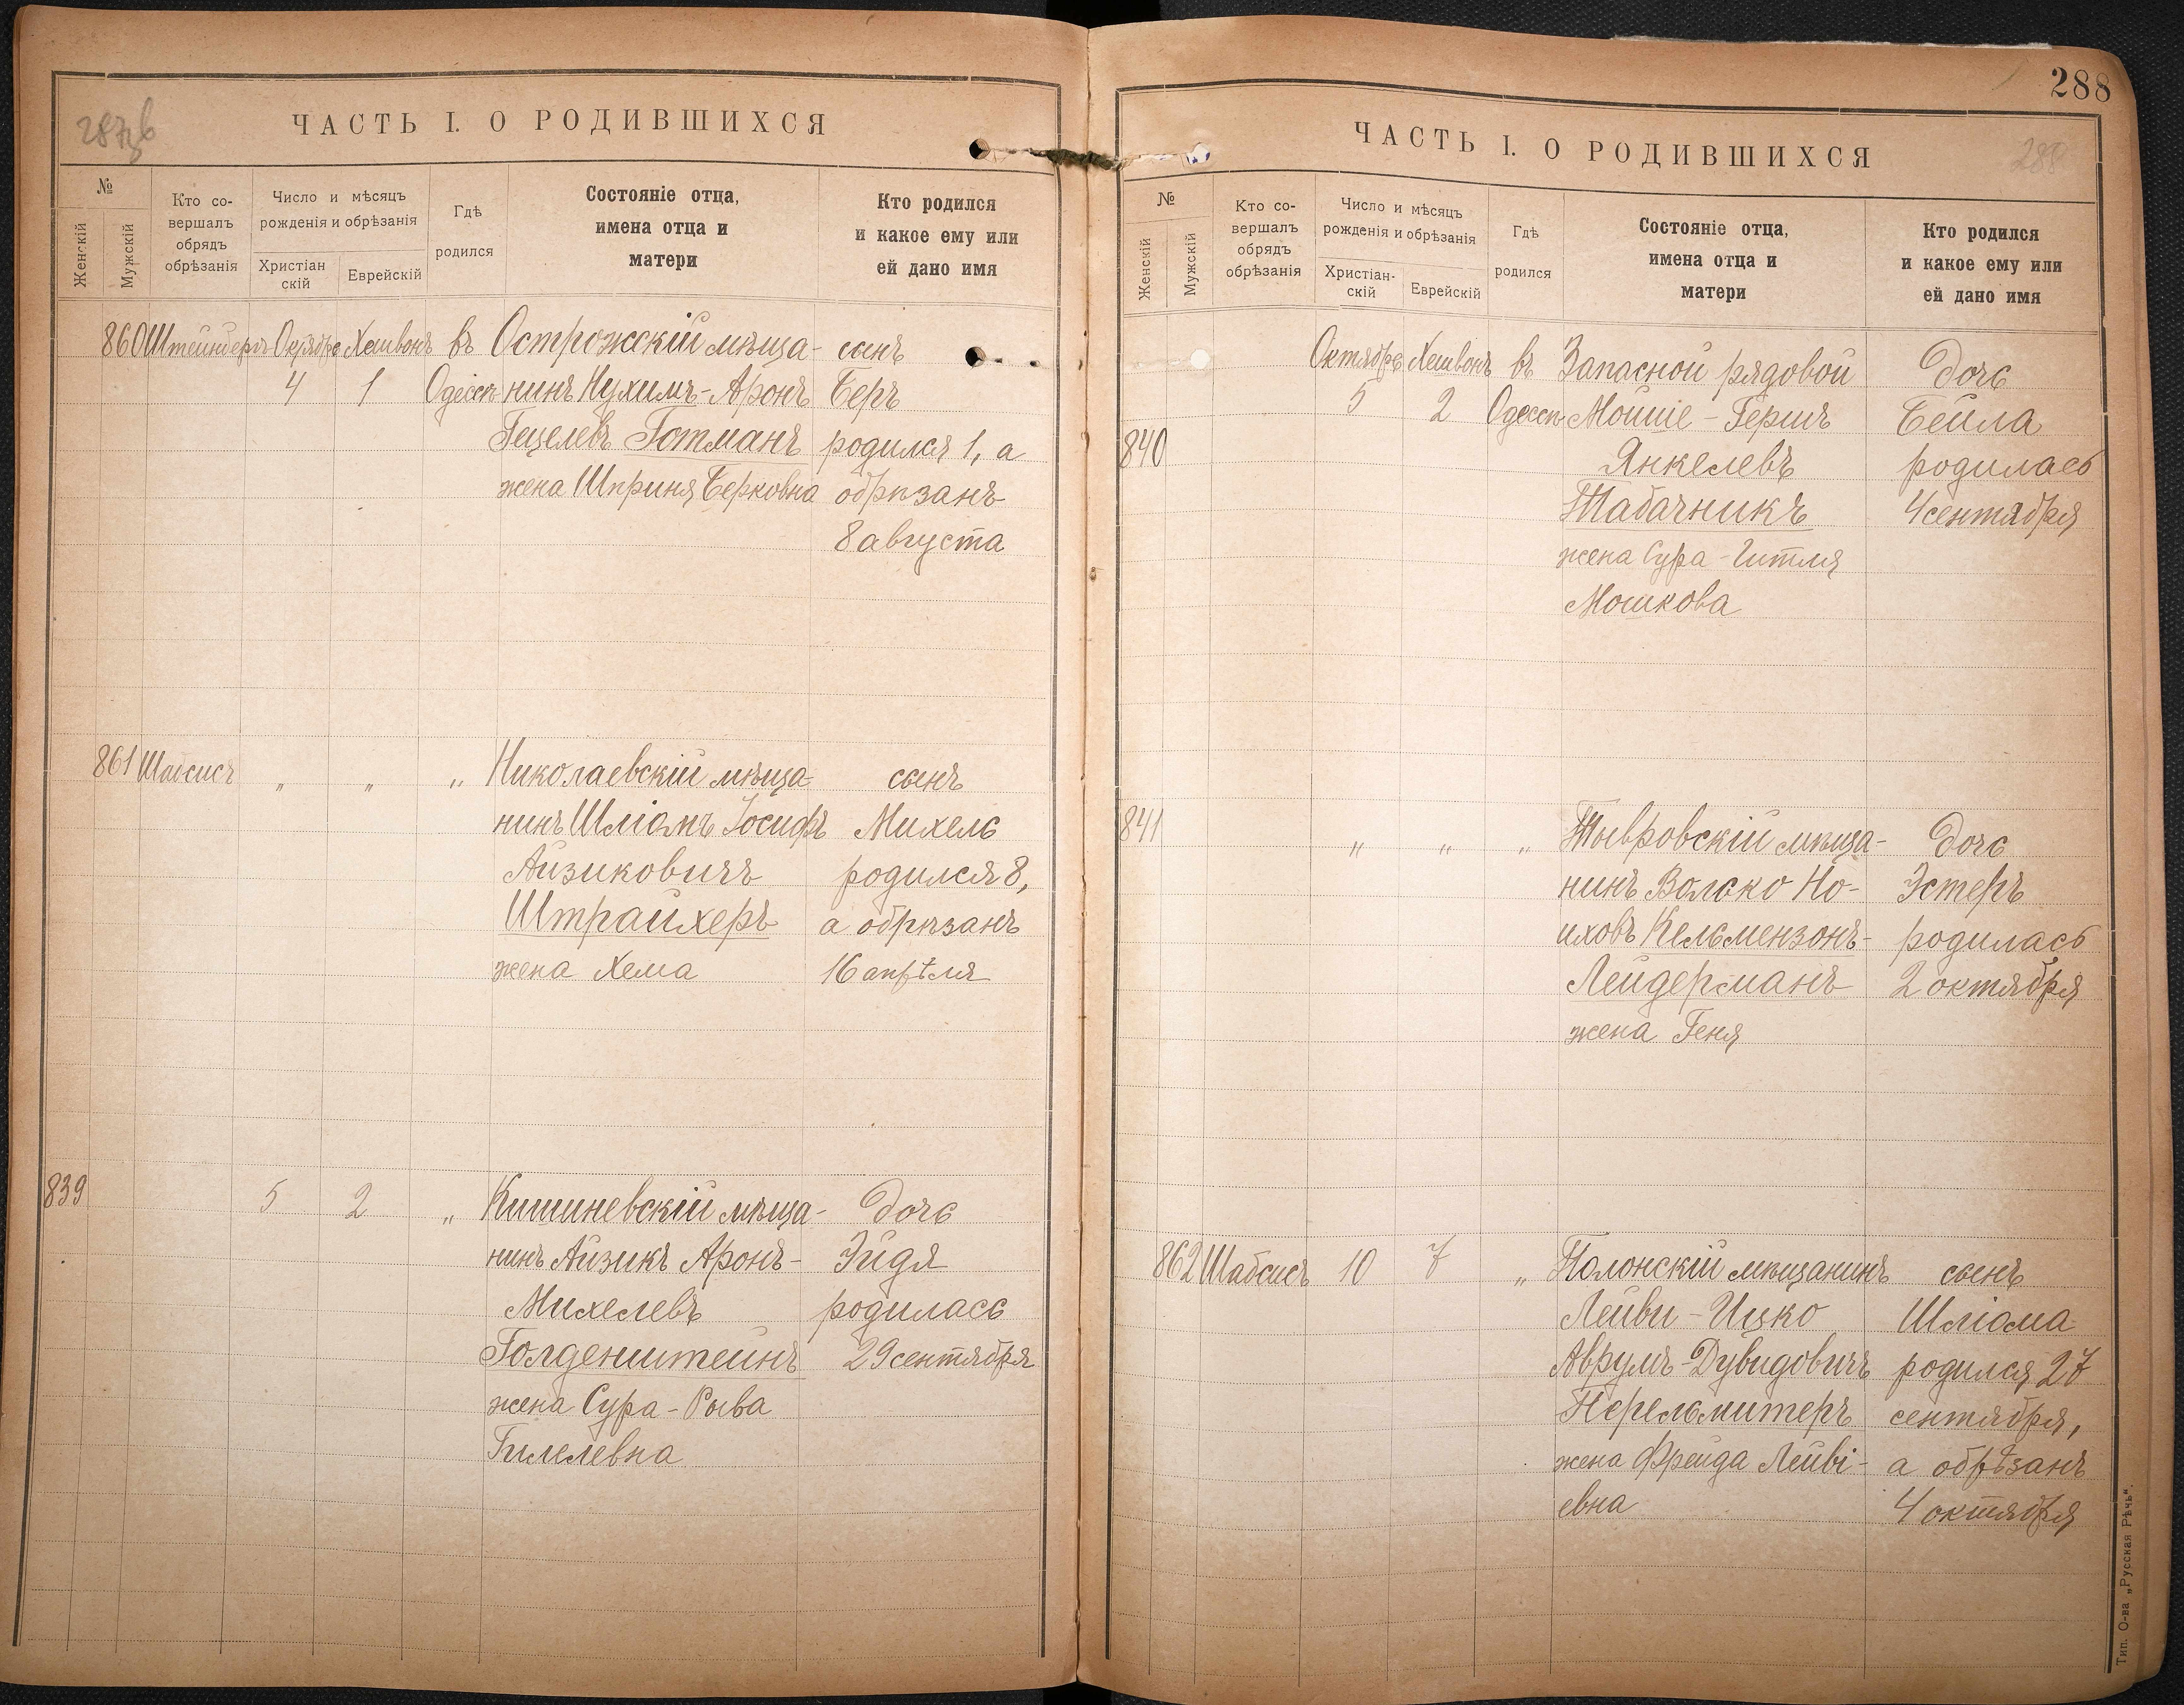 287зв
ЧАСТЬ I. О РОДИВШИХСЯ
№
Женскій
Мужскій
Кто со-
вершалъ
обрядъ
обрѣзанія
Число и мѣсяцъ
рожденія и обрѣзанія
Христіан
скій
Еврейскій
Гдѣ
родился
Состояніе отца,
имена отца и
матери
Кто родился
и какое ему или
ей дано имя
860 Штейнберг Октября Хешвонъ въ Острожскій мѣща- сынъ
4 1 Одессѣ нинъ Нухимъ-Аронъ Беръ
Гецелевъ Готманъ родился 1, а
жена Шприня Берковна обрѣзанъ
8 августа
861 Шабсисъ " " " Николаевскій мѣща- сынъ
нинъ Шліомъ Іосифъ Михель
Айзиковичъ родился 8,
Штрайхеръ а обрѣзанъ
жена Хема 16 апрѣля
839 5 2 " Кишиневскій мѣща- дочь
нинъ Айзикъ Аронъ- Эйдя
Михелевъ родилась
Голденштейнъ 29 сентября
жена Сура-Рыва
Гилелевна
288
ЧАСТЬ I. О РОДИВШИХСЯ
288
№
Женскій
Мужскій
Кто со-
вершалъ
обрядъ
обрѣзанія
Число и мѣсяцъ
рожденія и обрѣзанія
Христіан-
скій
Еврейскій
Гдѣ
родился
Состояніе отца,
имена отца и
матери
Кто родился
и какое ему или
ей дано имя
Октября Хешвонъ въ Запасной рядовой дочь
5 2 Одессѣ Мойше-Гершъ Бейла
840 Янкелевъ родилась
Табачникъ 4 сентября
жена Сура-Гитля
Мошкова
841 " " " Тывровскій мѣща- дочь
нинъ Волько Но- Эстеръ
иховъ Кельмензонъ- родилась
Лейдерманъ 2 октября
жена Геня
862 Шабсисъ 10 7 " Полонскій мѣщанинъ сынъ
Лейви-Ицко Шліома
Аврумъ-Дувидовичъ родился 27
Перельмитеръ сентября,
жена Фрейда Лейві- а обрѣзанъ
евна 4 октября
Тип. О-ва „Русская Рѣчь“.